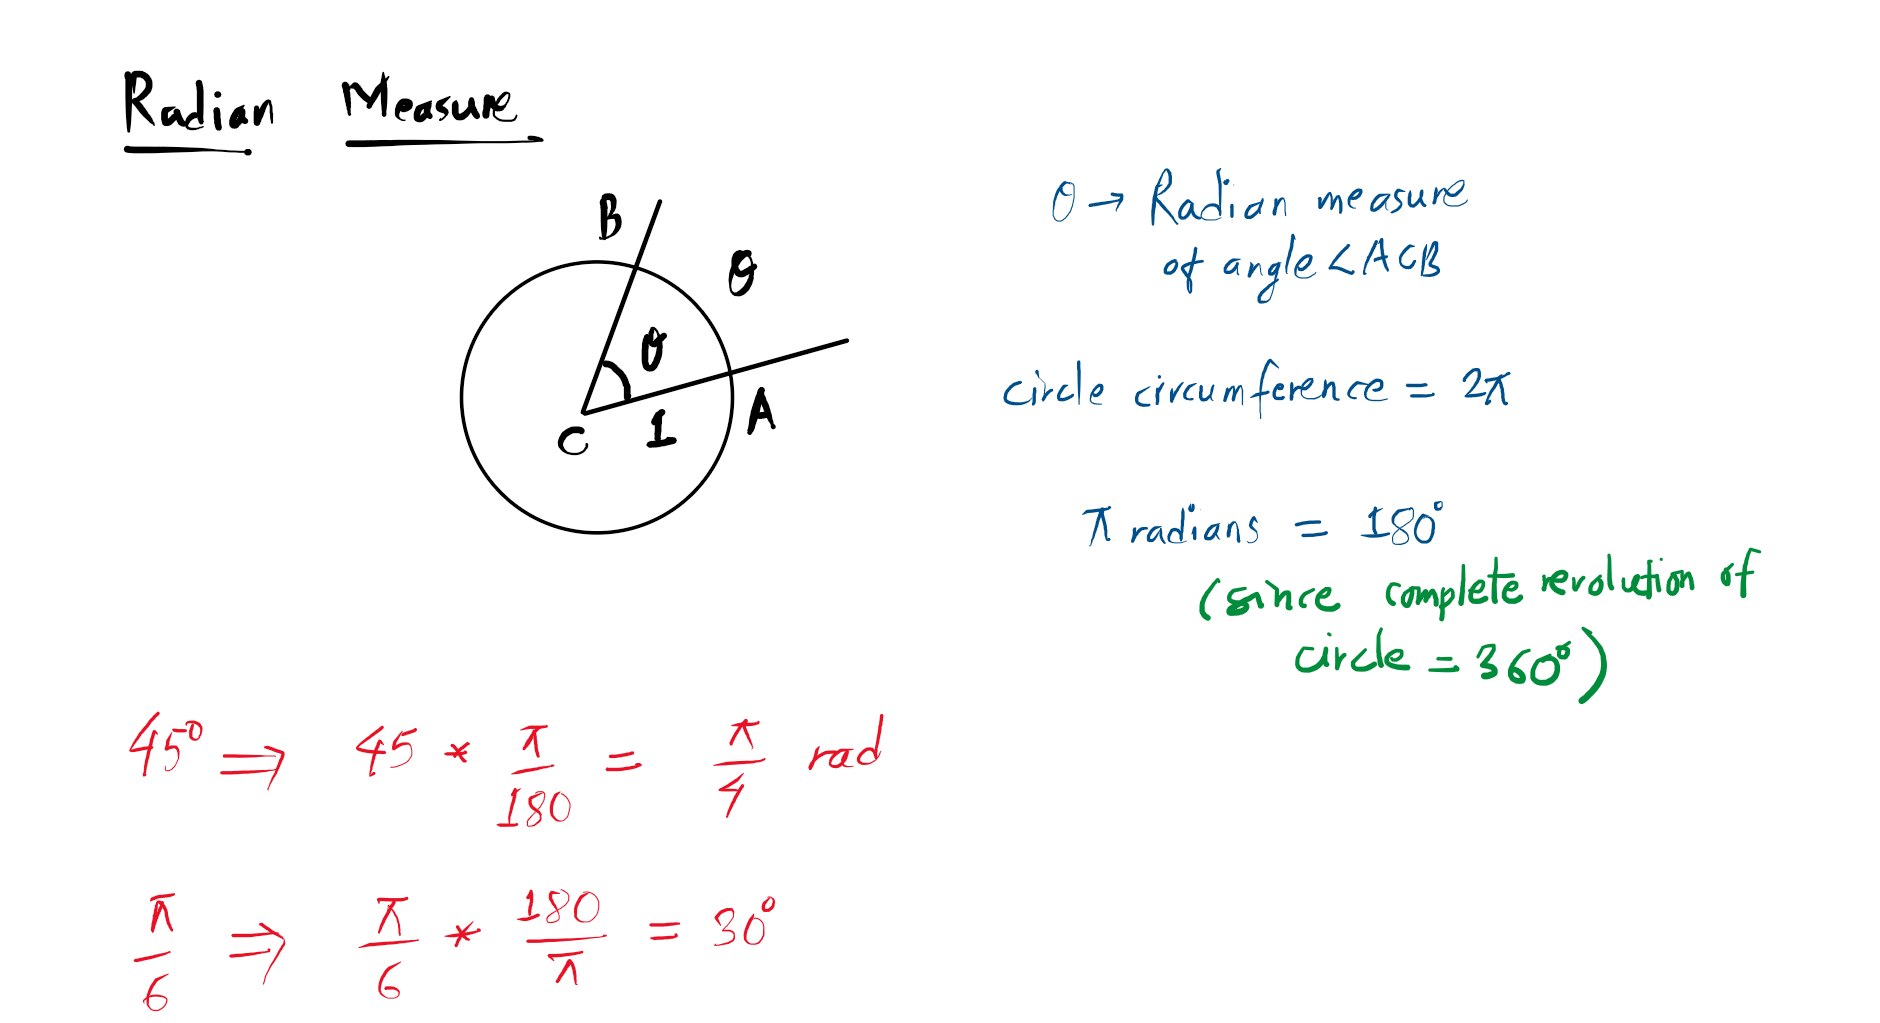 Radian Measure
B
θ
θ
C 1 A
θ → Radian measure
of angle ∠ACB
circle circumference = 2π
π radians = 180°
(since complete revolution of
circle = 360°)
45° ⇒ 45 * π/180 = π/4 rad
π/6 ⇒ π/6 * 180/π = 30°